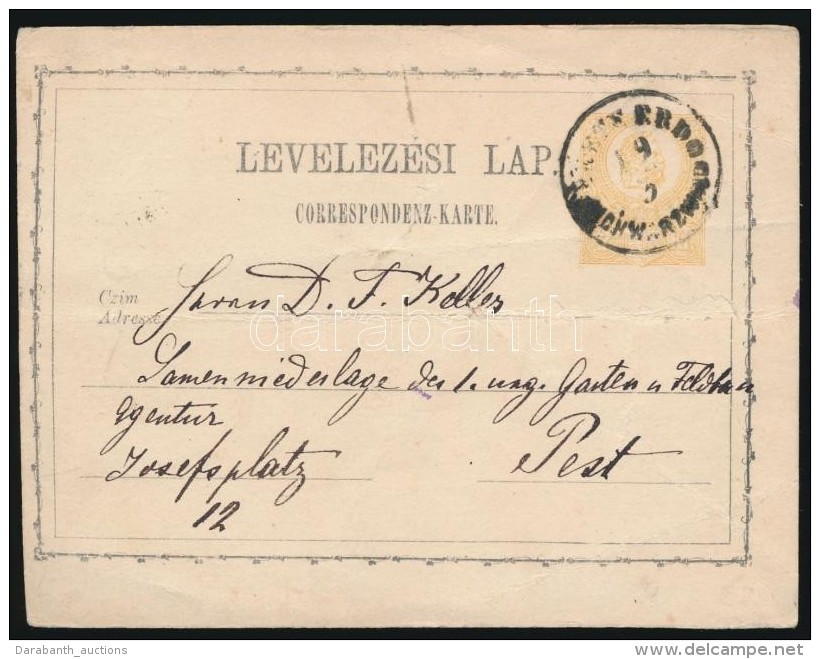 LEVELEZÉSI LAP
CORRESPONDENZ-KARTE.
ERDŐ
SCHWARZW
9
Czim
Adresse
Herrn D. F. Keller
Samenniederlage der 1. ung. Garten u Feldbau
Agentur
Josefsplatz Pest
12
darabanth
Darabanth_auctions
delcampe.net